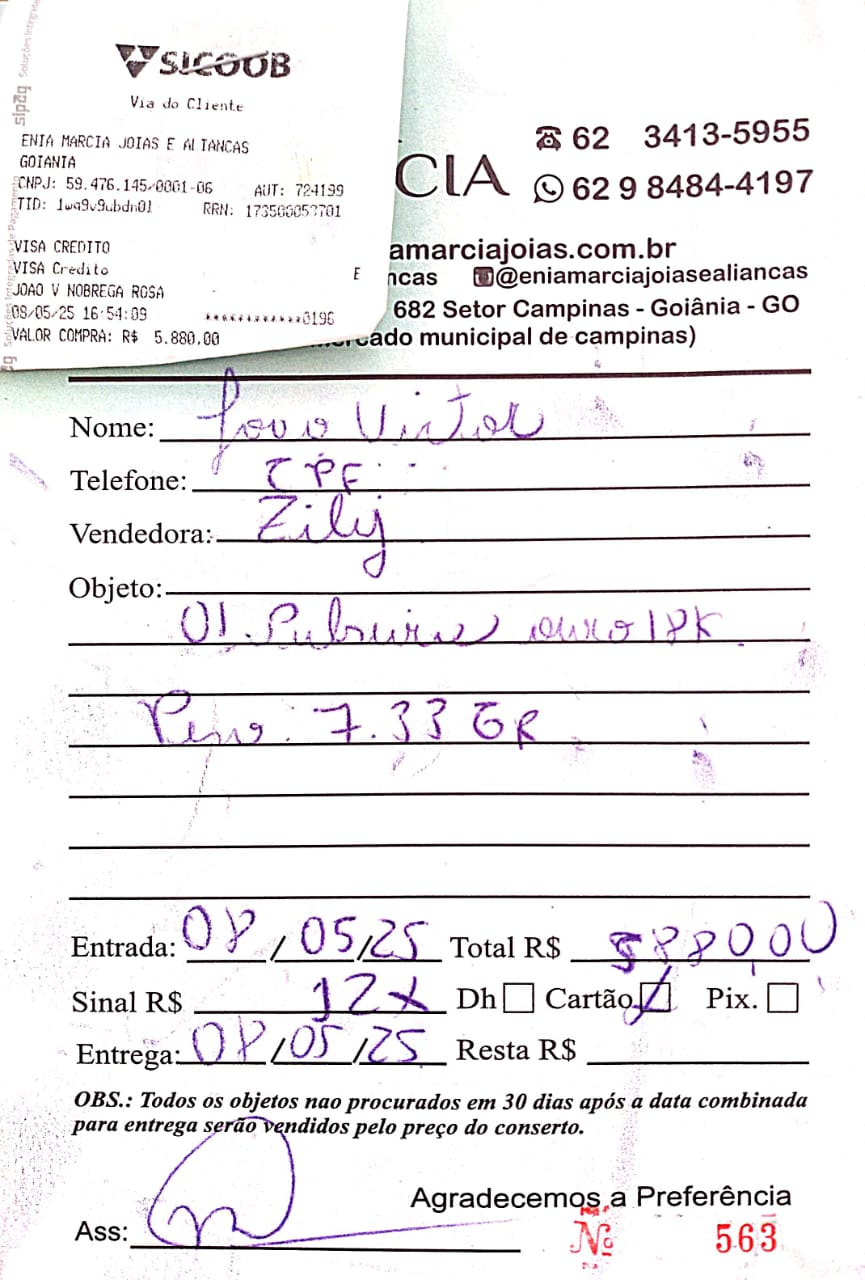 sipag Soluções Integradas de Pagamento
SICOOB
Via do Cliente
ENIA MARCIA JOIAS E ALIANCAS
GOIANIA
CNPJ: 59.476.145/0001-06 AUT: 724199
TID: 1wq9v9ubdn01 RRN: 173500053701
VISA CREDITO
VISA Credito E
JOAO V NOBREGA ROSA
08/05/25 16:54:09 ************0196
VALOR COMPRA: R$ 5.880,00
CIA
62 3413-5955
62 9 8484-4197
amarciajoias.com.br
ncas @eniamarciajoiasealiancas
682 Setor Campinas - Goiânia - GO
cado municipal de campinas)
Nome: João Victor
Telefone: CPF
Vendedora: Zily
Objeto:
01. Pulseira ouro 18K
Peso. 7.33 GR
Entrada: 08/05/25 Total R$ 5880,00
Sinal R$ 12x Dh Cartão Pix.
Entrega: 08/05/25 Resta R$
OBS.: Todos os objetos nao procurados em 30 dias após a data combinada
para entrega serão vendidos pelo preço do conserto.
Agradecemos a Preferência
Ass:
Nº 563